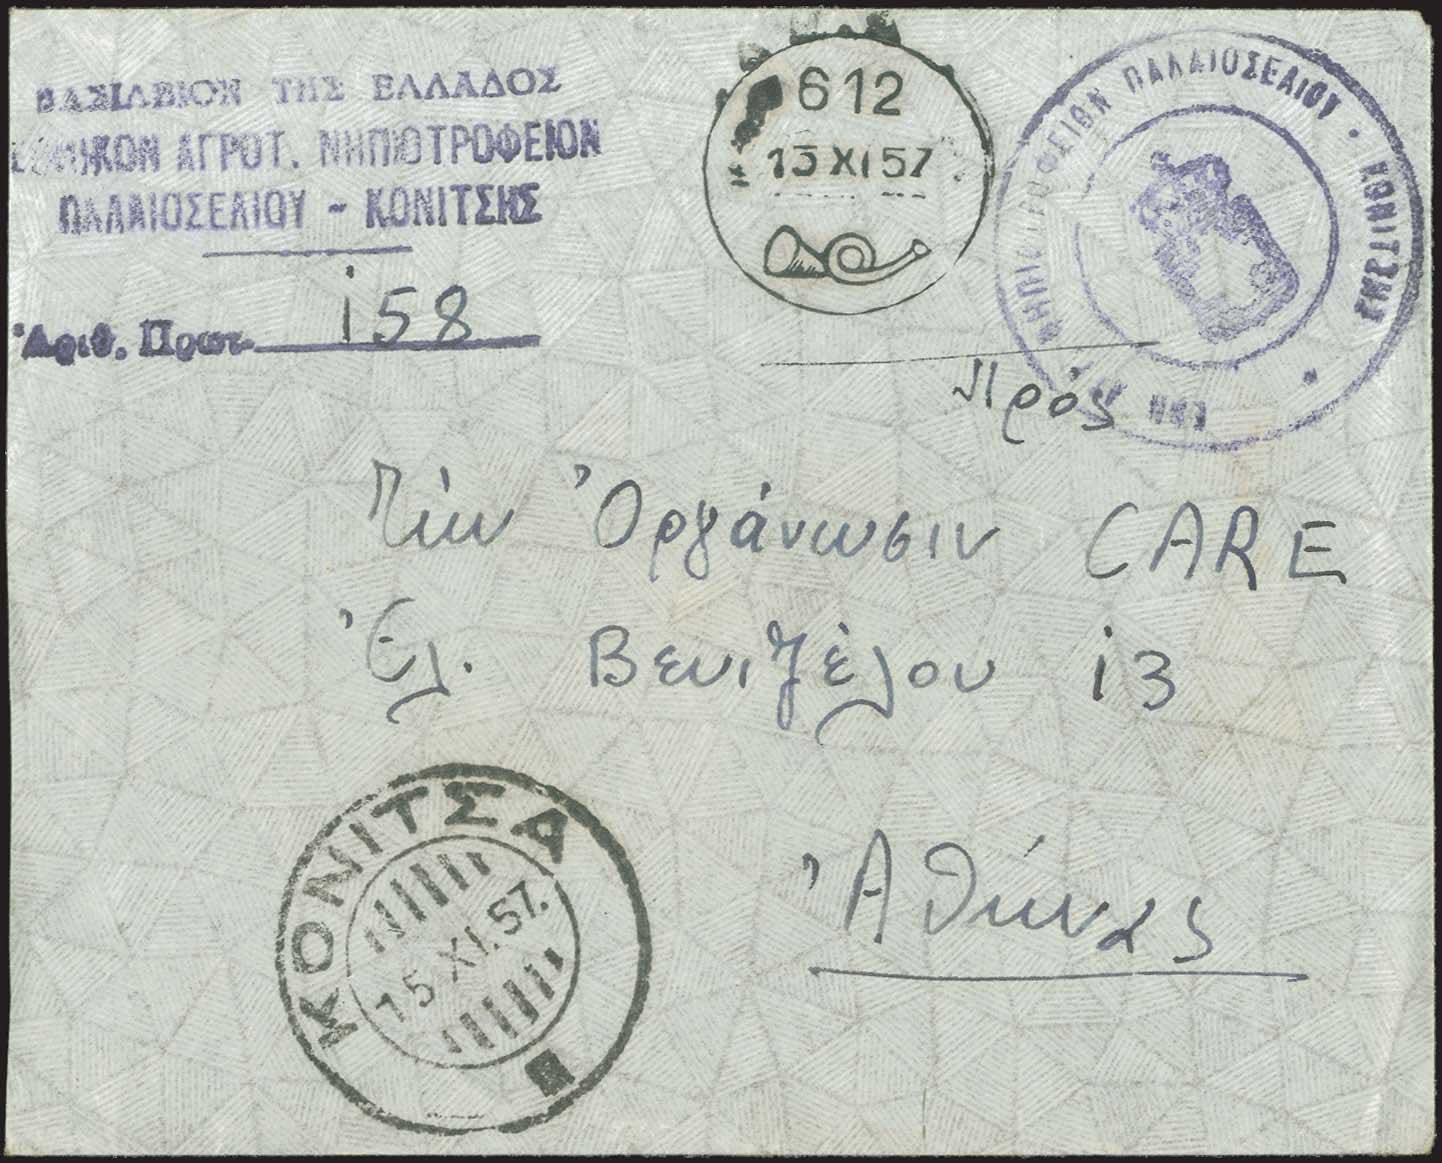 ΒΑΣΙΛΕΙΟΝ ΤΗΣ ΕΛΛΑΔΟΣ
ΕΘΝΙΚΟΝ ΑΓΡΟΤ. ΝΗΠΙΟΤΡΟΦΕΙΟΝ
ΠΑΛΑΙΟΣΕΛΙΟΥ - ΚΟΝΙΤΣΗΣ
Ἀριθ. Πρωτ. 158
612
13 XI 57
ΝΗΠΙΟΤΡΟΦΕΙΟΝ ΠΑΛΑΙΟΣΕΛΙΟΥ · ΚΟΝΙΤΣΗΣ
Πρός
Τήν Ὀργάνωσιν CARE
Ἐλ. Βενιζέλου 13
Ἀθήνας
ΚΟΝΙΤΣΑ
15 XI. 57.
Β